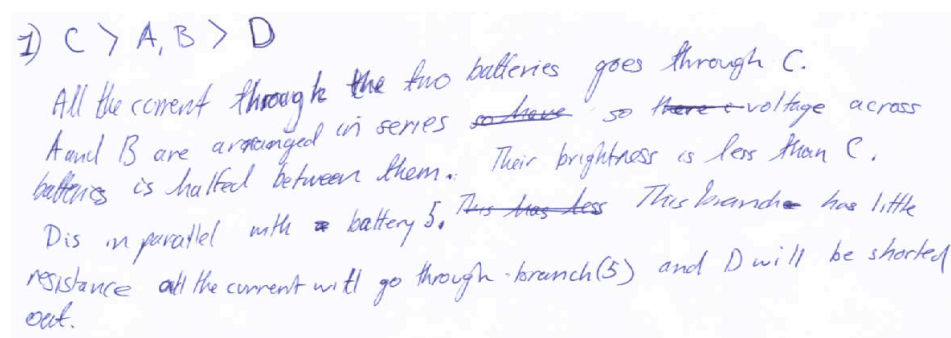 1) C > A, B > D
All the current through the two batteries goes through C.
A and B are arranged in series so have so there voltage across
batteries is halfed between them. Their brightness is less than C.
D is in parallel with battery 5. This has less This branch has little
resistance all the current will go through branch (5) and D will be shorted
out.